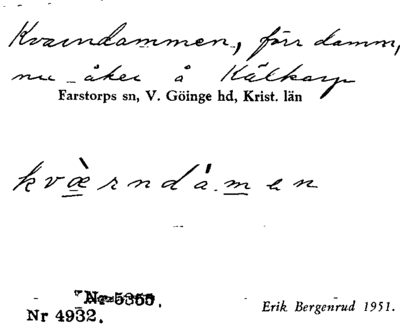 Kvarndammen, förr damm,
nu åker å Kälkarp
Farstorps sn, V. Göinge hd, Krist. län
kvæ̀rndàmen
Nr 4932.
Erik Bergenrud 1951.